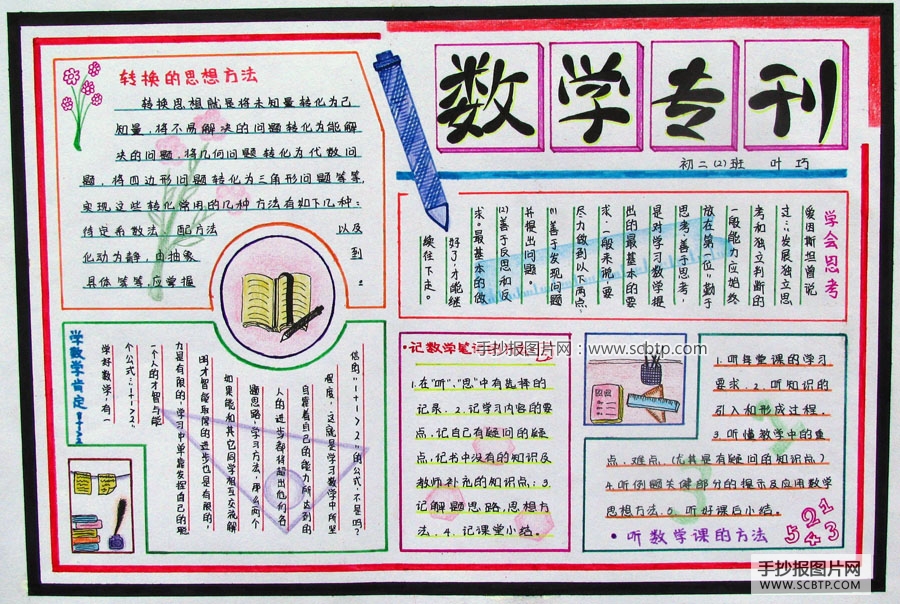 数学专刊
初二(2)班 叶巧
转换的思想方法
转换思想就是将未知量转化为已
知量,将不易解决的问题转化为能解
决的问题,将几何问题转化为代数问
题,将四边形问题转化为三角形问题等等,
实现这些转化常用的几种方法有如下几种:
待定系数法 配方法 以及
化动为静,由抽象 到
具体等等,应掌握 。
学会思考
爱因斯坦曾说
过:“发展独立思
考和独立判断的
一般能力应始终
放在第一位”勤于
思考,善于思考,
是对学习数学提
出的最基本的要
求,一般来说,要
尽力做到以下两点,
(1)善于发现问题
并提出问题。
(2)善于反思和反
求。最基本的做
好了,才能继
续往下走。
学数学肯定1+1>2
学好数学,有一
个公式:1+1>2,
一个人的才智与能
力是有限的,学习中单靠发挥自己的聪
明才智能取得的进步也是有限的,
如果能和其它同学相互交流解
题思路,学习方法,那么两个
人的进步都将超出他们各
自靠着自己的能力所达到的
程度,这就是学习数学中所坚
信的“1+1>2”的公式,不是吗?
·记数学笔记
手抄报图片网:www.scbtp.com
1.在“听”、“思”中有选择的
记录. 2.记学习内容的要
点,记自己有疑问的疑
点,记书中没有的知识及
教师补充的知识点; 3.
记解题思路,思想方
法. 4. 记课堂小结。
1.听每堂课的学习
要求. 2. 听知识的
引入和形成过程.
3.听懂教学中的重
点、难点、(尤其是有疑问的知识点)
4.听例题关健部分的提示及应用数学
思想方法. 5. 听好课后小结。
·听数学课的方法
5 2 4 1 3
手抄报图片网
WWW.SCBTP.COM